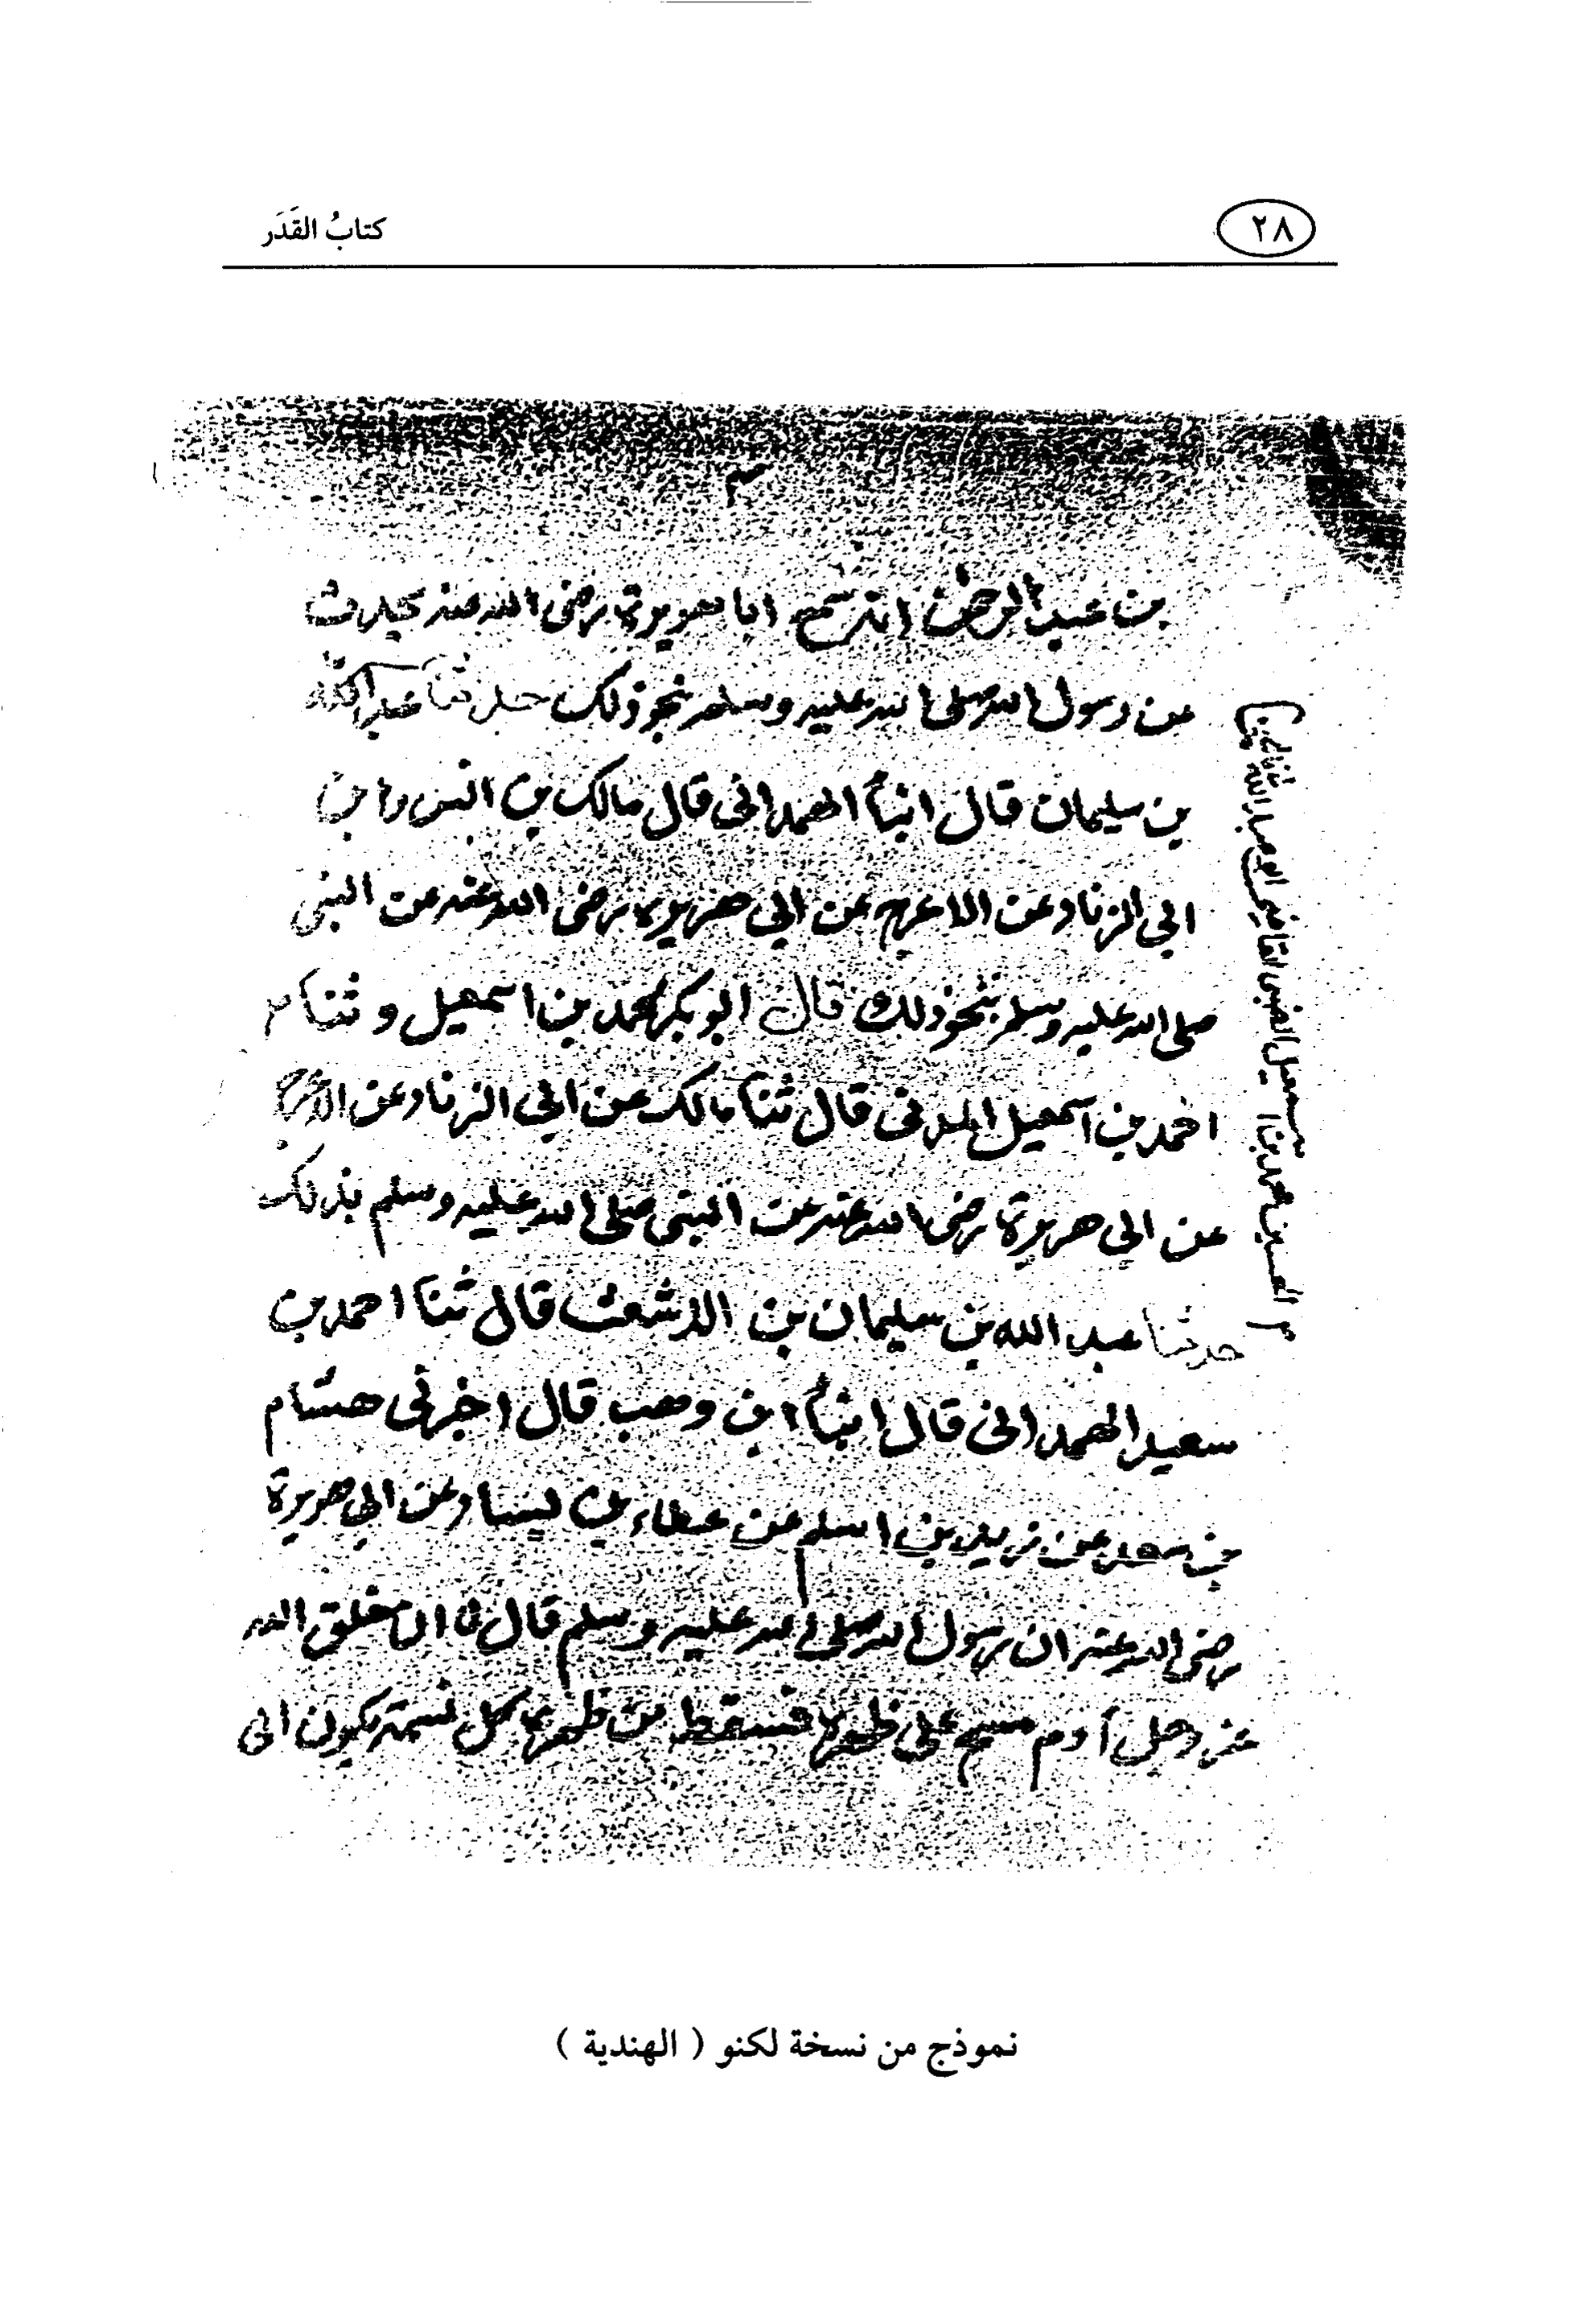 ٢٨
كتابُ القَدَر
بن عبد الرحمن انه سمع ابا هريرة رضى الله عنه يحدث
عن رسول الله صلى الله عليه وسلم نحو ذلك حدثنا عبد الله
بن سليمان قال انبأ الهمدانى قال مالك بن انس
ابي الزناد عن الاعرج عن ابي هريرة رضى الله عنه عن النبى
صلى الله عليه وسلم بنحو ذلك قال ابو بكر محمد بن اسمعيل و ثنا
احمد بن اسمعيل المدنى قال ثنا مالك عن ابي الزناد عن الاعرج
عن ابي هريرة رضى الله عنه عن النبى صلى الله عليه وسلم بذلك
حدثنا عبد الله بن سليمان بن الاشعث قال ثنا احمد بن
سعيد الهمدانى قال انبأ ابن وهب قال اخبرنى هشام
بن سعد عن زيد بن اسلم عن عطاء بن يسار عن ابي هريرة
رضى الله عنه ان رسول الله صلى الله عليه وسلم قال خلق الله
عز وجل آدم مسح على ظهره فسقط من ظهره كل نسمة تكون الى
الحسين بن محمد بن اسمعيل الضبى القاضى ابو عبد الله
نموذج من نسخة لكنو ( الهندية )